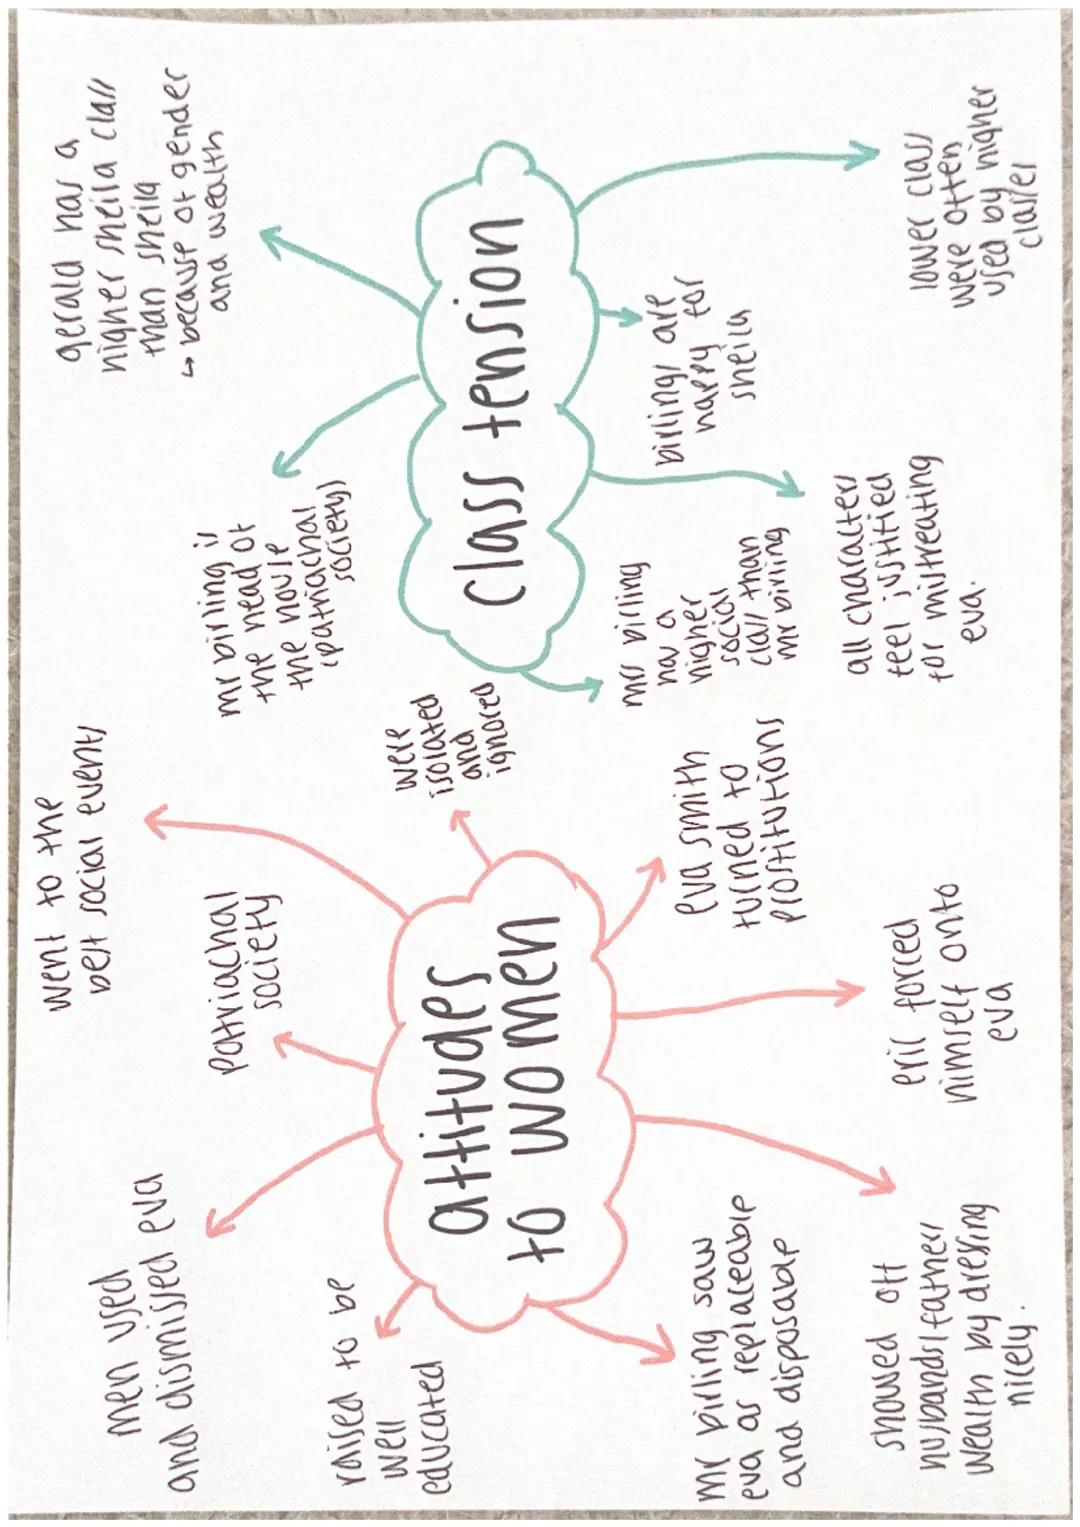 men used
and dismissed eva
raised to be
well
educated
patriachal
society
went to the
best social events
were
isolated
and
ignored
attitudes
to women
mr birling saw
eva as replaceable
and disposable
showed off
husbands/father
wealth by dressing
nicely.
eric forced
himself onto
eva
eva smith
turned to
prostitutions
mr birling is
the head of
the house
(patriachal
society)
gerald has a
higher sheila class
than sheila
↳ because of gender
and wealth
class tension
mrs birling
has a
higher
social
class than
mr birling
all characters
feel justified
for mistreating
eva.
birlings are
happy for
sheila
lower class
were often
used by higher
classes